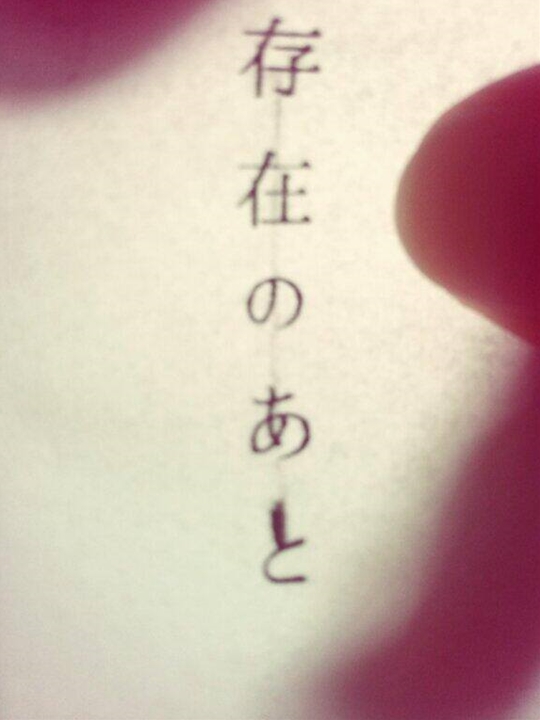 存在のあと